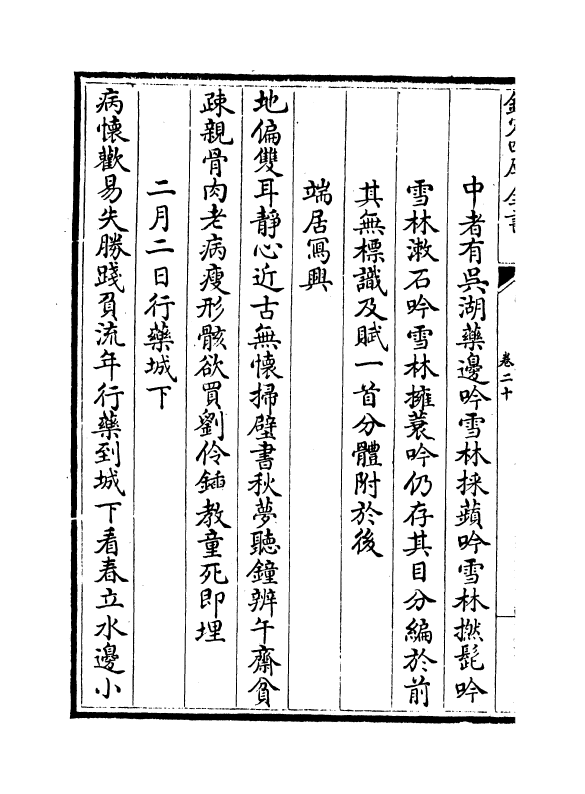 欽定四庫全書
卷二十
中者有吳湖藥邊吟雪林採蘋吟雪林撚髭吟
雪林漱石吟雪林擁蓑吟仍存其目分編於前
其無標識及賦一首分體附於後
端居寫興
地偏雙耳靜心近古無懷掃壁書秋夢聽鐘辨午齋貧
疎親骨肉老病瘦形骸欲買劉伶鍤教童死即埋
二月二日行藥城下
病懷歡易失勝踐負流年行藥到城下看春立水邊小